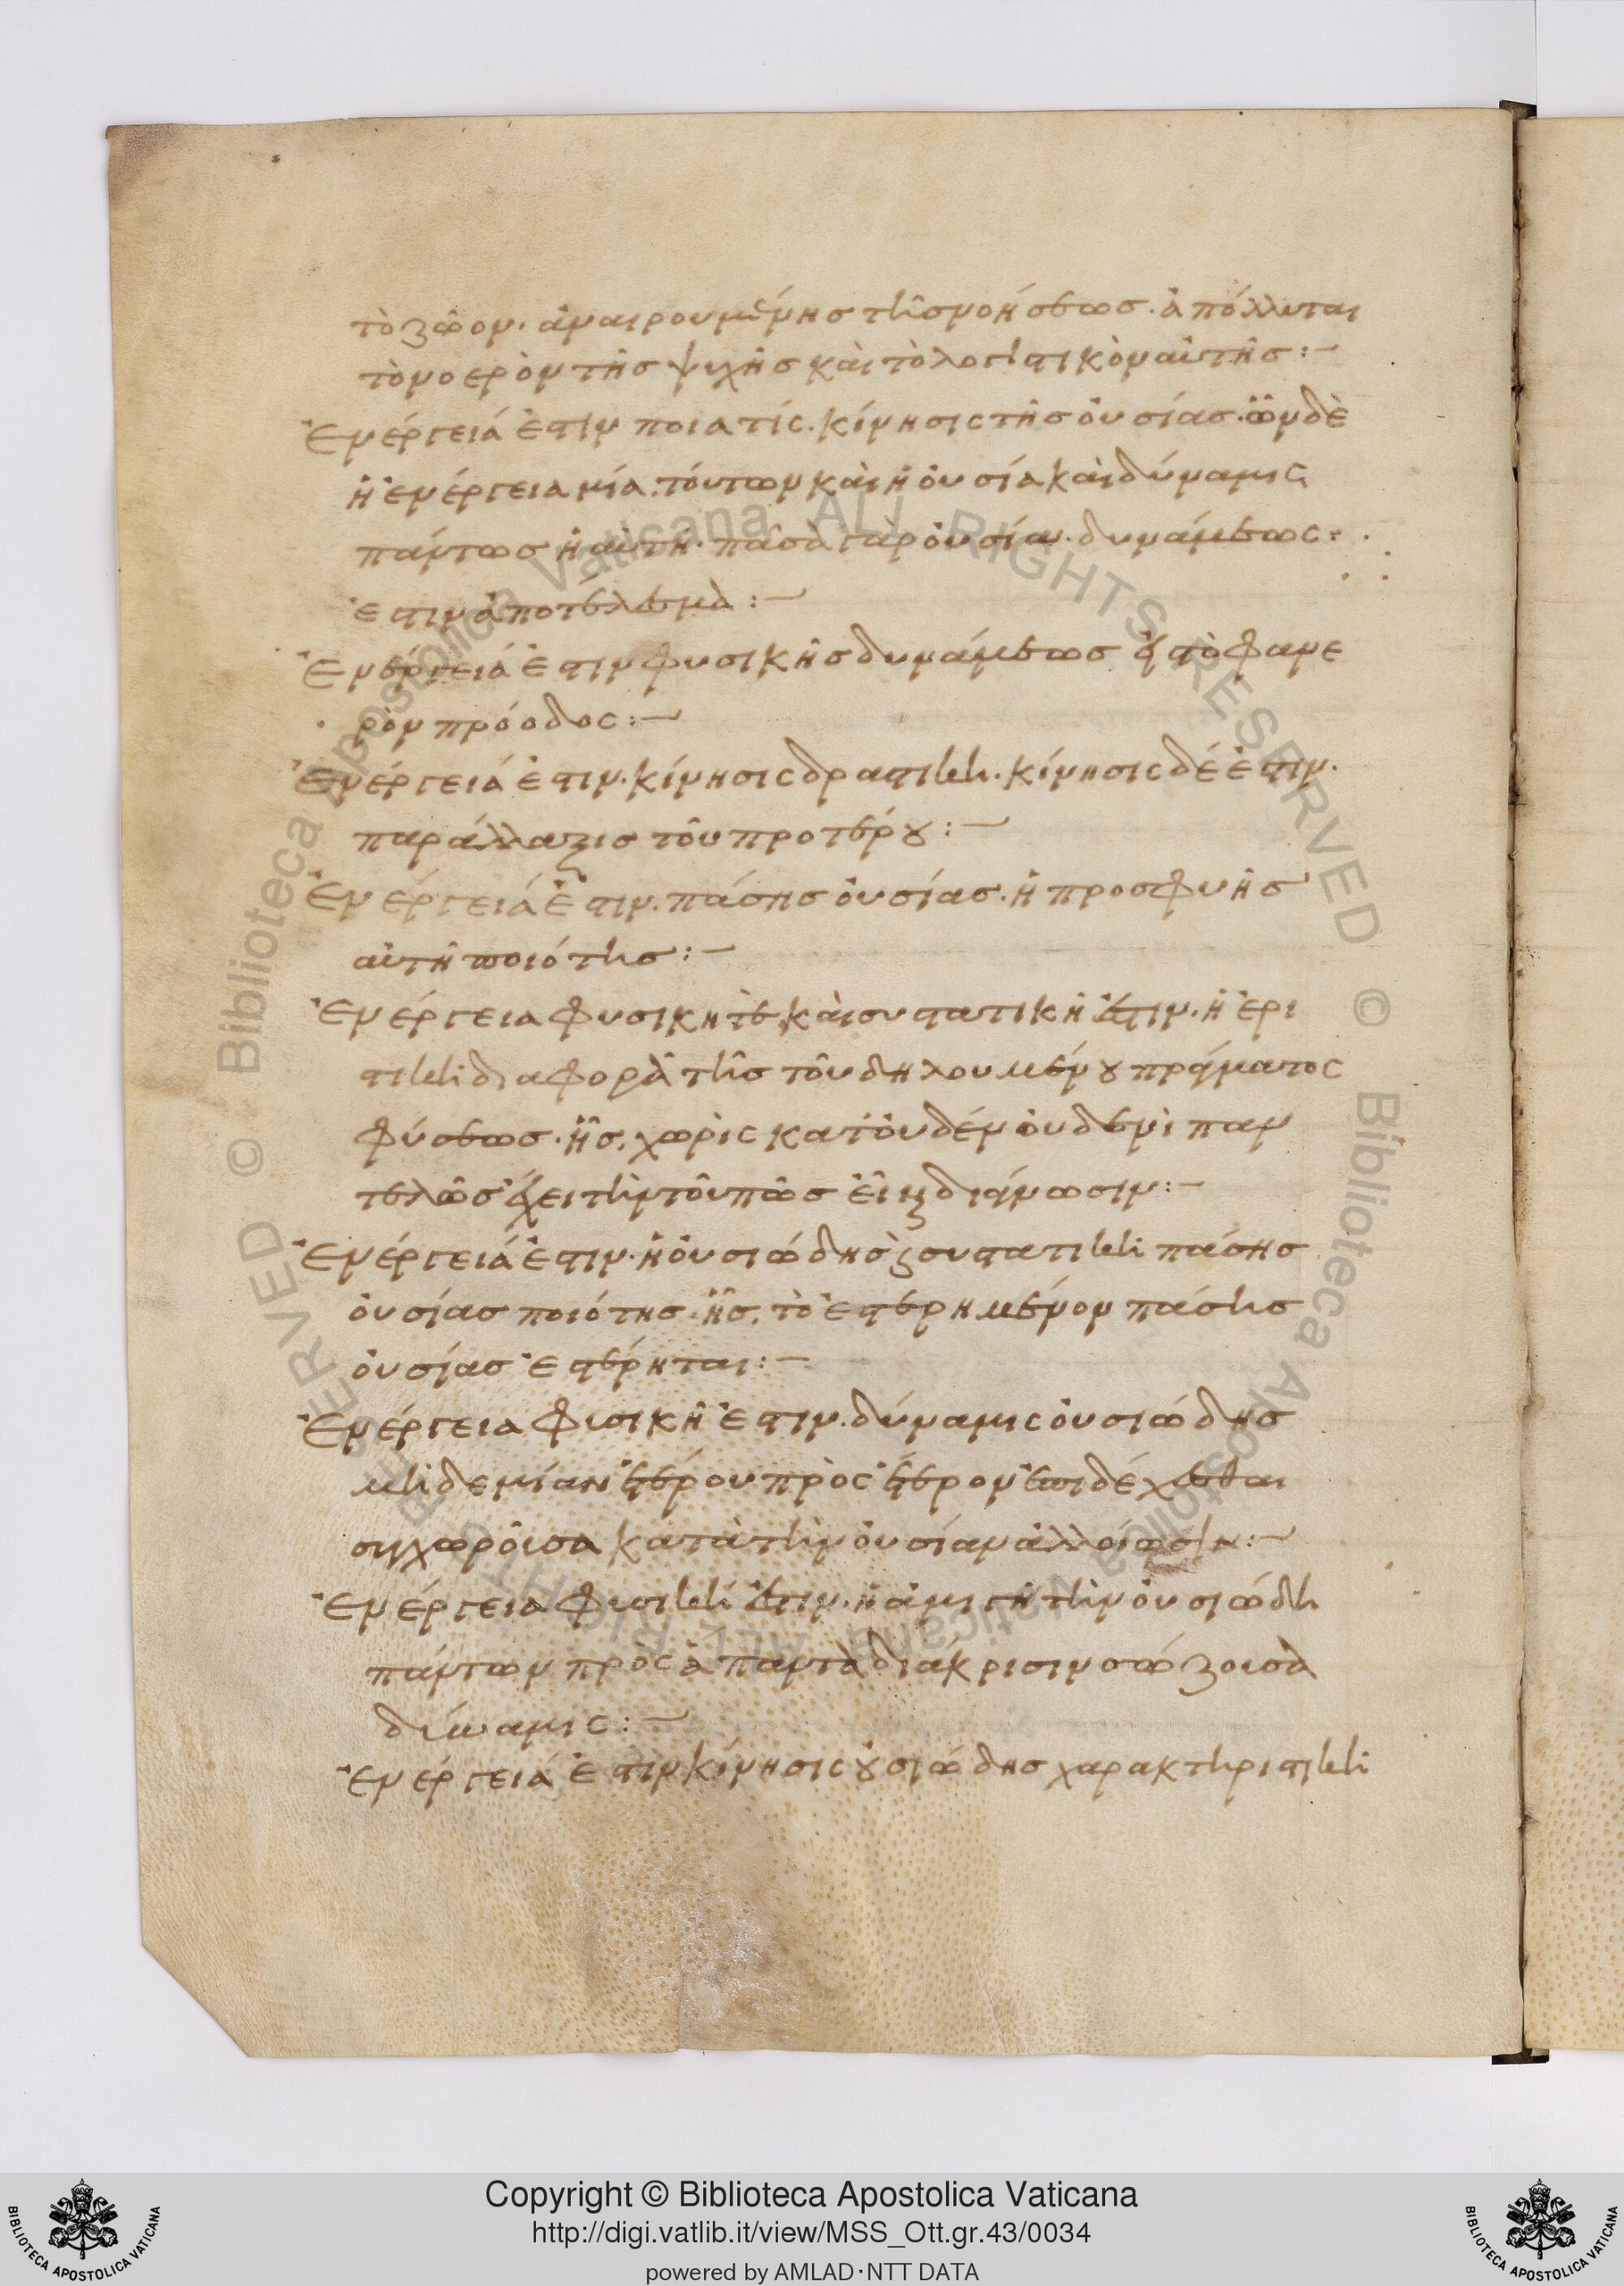 τὸ ζῷον. ἀναιρουμένης τῆς νοήσεως. ἀπόλλυται
τὸ νοερὸν τῆς ψυχῆς καὶ τὸ λογιστικὸν αὐτῆς:~
Ἐνέργειά ἐστιν ποιά τίς. κίνησις τῆς οὐσίας. ὧν δὲ
ἡ ἐνέργεια μία. τούτων καὶ ἡ οὐσία καὶ δύναμις
πάντως ἡ αὐτή. πᾶσα γὰρ οὐσία. δυνάμεως.
ἐστιν ἀποτέλεσμα:~
Ἐνέργειά ἐστιν φυσικῆς δυνάμεως ἐς τὸ φανε
ρὸν πρόοδος:~
Ἐνέργειά ἐστιν. κίνησις δραστική. κίνησις δέ ἐστιν.
παράλλαξις τοῦ προτέρου:~
Ἐνέργειά ἐστιν. πάσης οὐσίας. ἡ προσφυὴς
αὐτῆ ποιότης:~
Ἐνέργεια φυσική τε καὶ συστατική ἐστιν. ἡ ἐρι
στικὴ διαφορὰ τῆς τοῦ δηλουμένου πράγματος
φύσεως. ἧς. χωρὶς κατ' οὐδέν οὐδενὶ παν
τελῶς ἔχει τὴν τοῦ πῶς εἶναι διάγνωσιν:~
Ἐνέργειά ἐστιν. ἡ οὐσιώδης καὶ συστατικὴ πάσης
οὐσίας ποιότης. ἧς. τὸ ἐστερημένον πάσης
οὐσίας ἐστέρηται:~
Ἐνέργεια φυσική ἐστιν. δύναμις οὐσιώδης
μηδεμίαν ἑτέρου πρὸς ἕτερον ἐπιδέχεσθαι
συγχωροῦσα κατὰ τὴν οὐσίαν ἀλλοίωσιν:~
Ἐνέργεια φυσική ἐστιν. ἡ ἀμιγῆ τὴν οὐσιώδη
πάντων πρὸς ἅπαντα διάκρισιν σώζουσα
δύναμις:~
Ἐνέργειά ἐστιν κίνησις οὐσιώδης χαρακτηριστικὴ
Copyright © Biblioteca Apostolica Vaticana
http://digi.vatlib.it/view/MSS_Ott.gr.43/0034
powered by AMLAD·NTT DATA